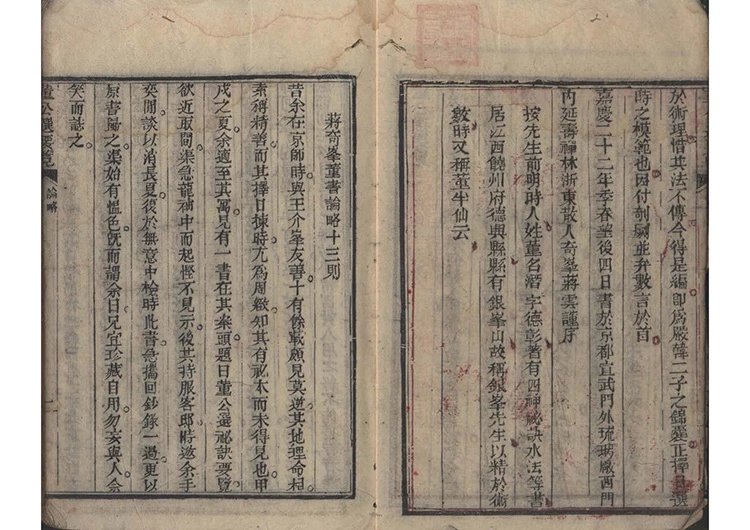 於術理惜其法不傳今得是編即為嚴韓二子之錦囊正擇日選
時之模範也因付剞劂並弁數言於首
嘉慶二十二年季春華後四日書於京都宣武門外琉璃廠西門
內延壽禪林浙東散人奇峯蔣雲謹序
按先生前明時人姓董名潛字德彰著有四神秘訣水法等書
居江西饒州府德興縣縣有銀峯山故稱銀峯先生以精於術
數時又稱董半仙云
蔣奇峯董書論略十三則
昔余在京師時與王介峯友善十有餘載頗見莫逆其地理命相
素稱精善而其擇日揀時尤為周緻知其有祕本而未得見也甲
戌之夏余適至其寓見有一書在其案頭題曰董公選祕訣要覽
欲近取閱渠急龍袖中而起慳不見示後其持服客邸時邀余手
奕閒談以消長夏復於無意中檢時此書急攜回鈔錄一過更以
原書歸之渠始有慍色旣而謂余曰兄宜珍藏自用勿妄與人余
笑而誌之
董公選要覽
論略
二